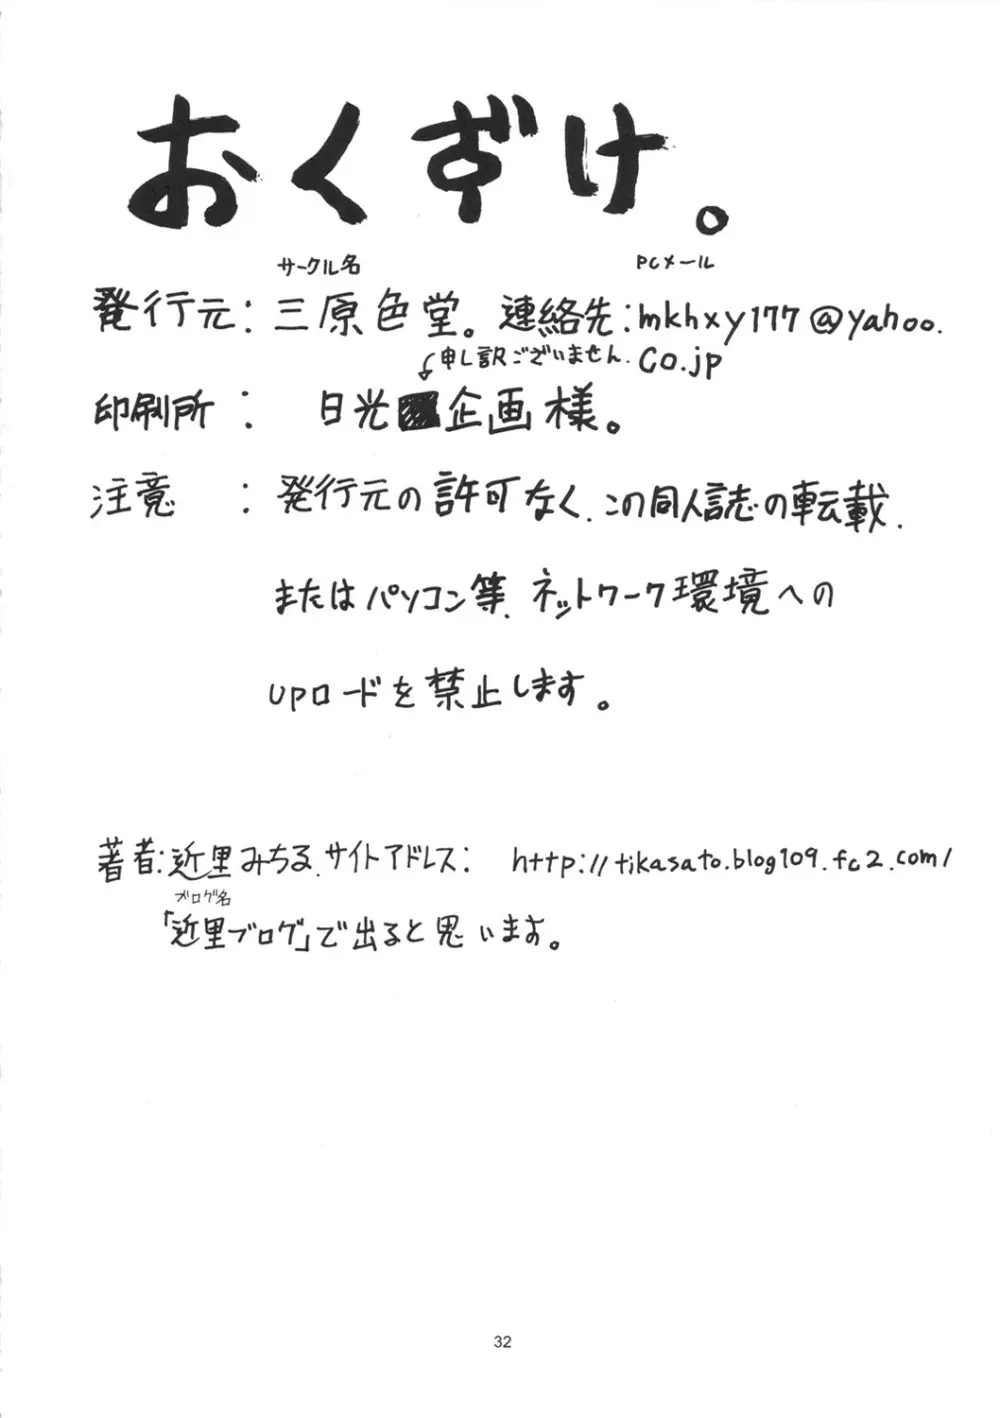 おくずけ。
サークル名 PCメール
発行元：三原色堂。連絡先：mkhxy177@yahoo.
申し訳ございません. co.jp
印刷所： 日光企画様。
注意 ：発行元の許可なく、この同人誌の転載、
またはパソコン等、ネットワーク環境への
UPロードを禁止します。
著者：近里みちる、サイトアドレス： http://tikasato.blog109.fc2.com/
ブログ名
「近里ブログ」で出ると思います。
32